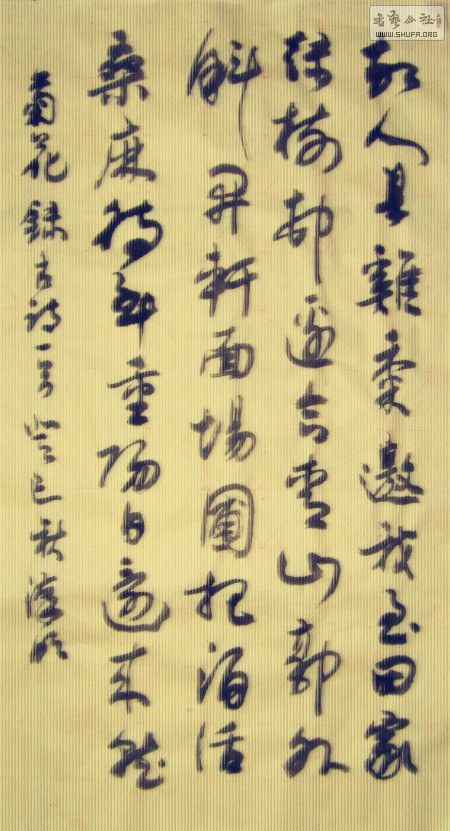 書藝公社
WWW.SHUFA.ORG
故人具雞黍邀我至田家
綠樹村邊合青山郭外
斜開軒面場圃把酒話
桑麻待到重陽日還來就
菊花錄古詩一首癸巳秋